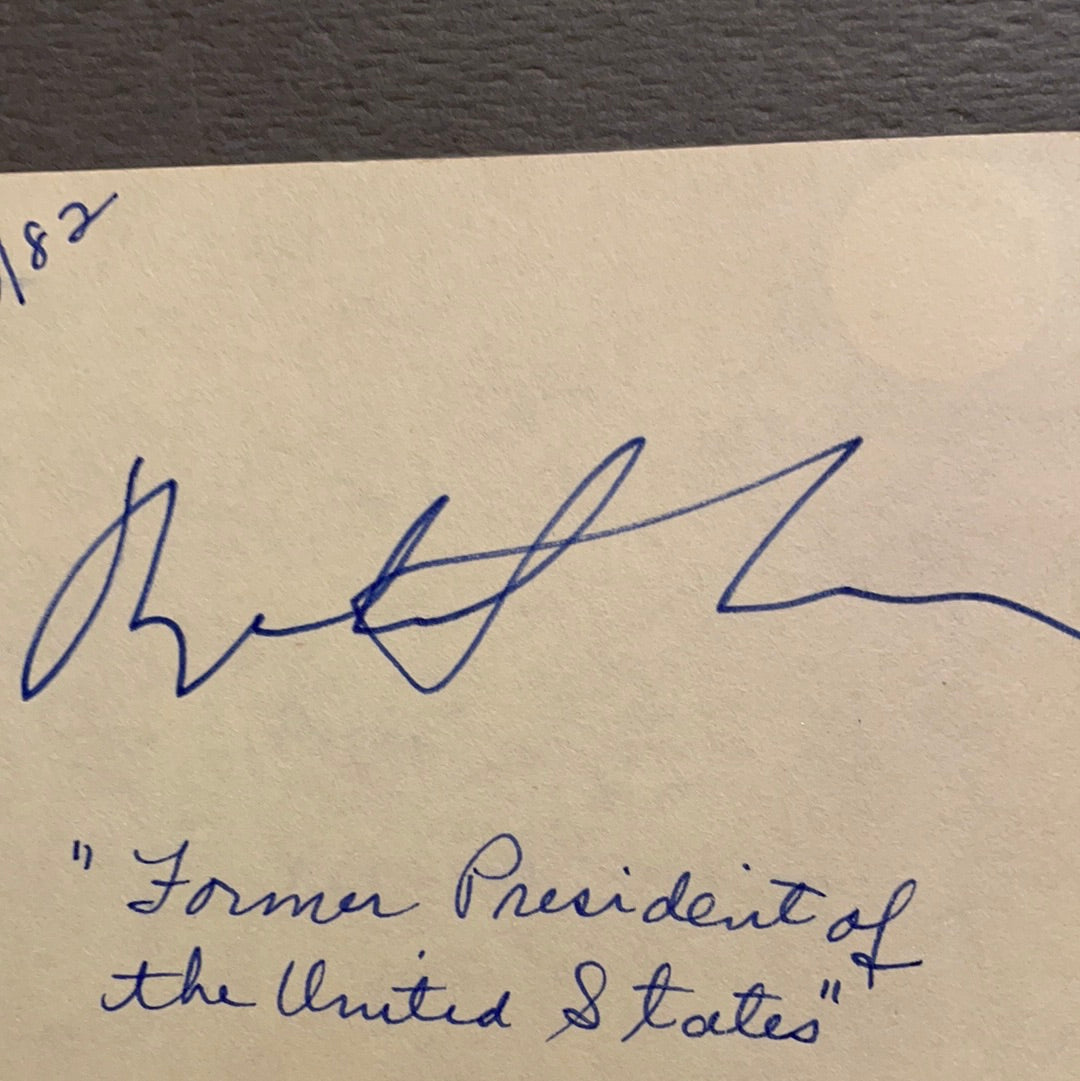 /82
"Former President of
the United States"